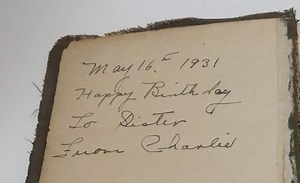 May 16.th 1931
Happy Birthday
To Sister
From Charlie